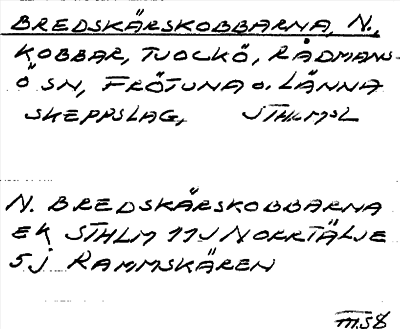 BREDSKÄRSKOBBARNA, N.,
KOBBAR, TJOCKÖ, RÅDMANS-
Ö SN, FRÖTUNA o. LÄNNA
SKEPPSLAG, STHLMSL
N. BREDSKÄRSKOBBARNA
EK STHLM 11J NORRTÄLJE
5j RAMMSKÄREN